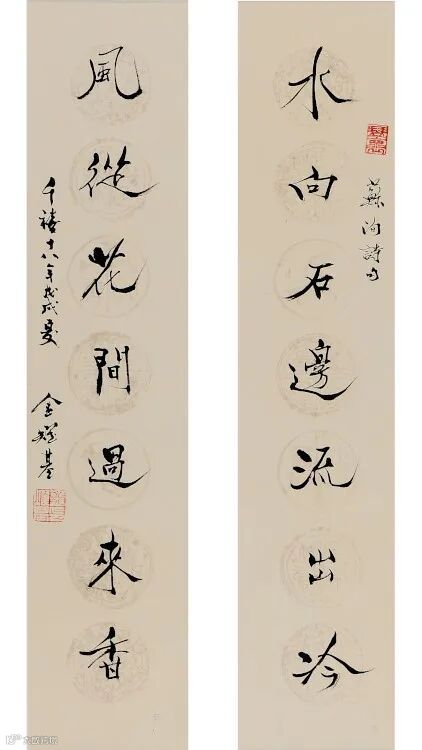 水向石邊流出冷
蘇洵詩句
風從花間過來香
千禧十八年戊戌夏
金耀基